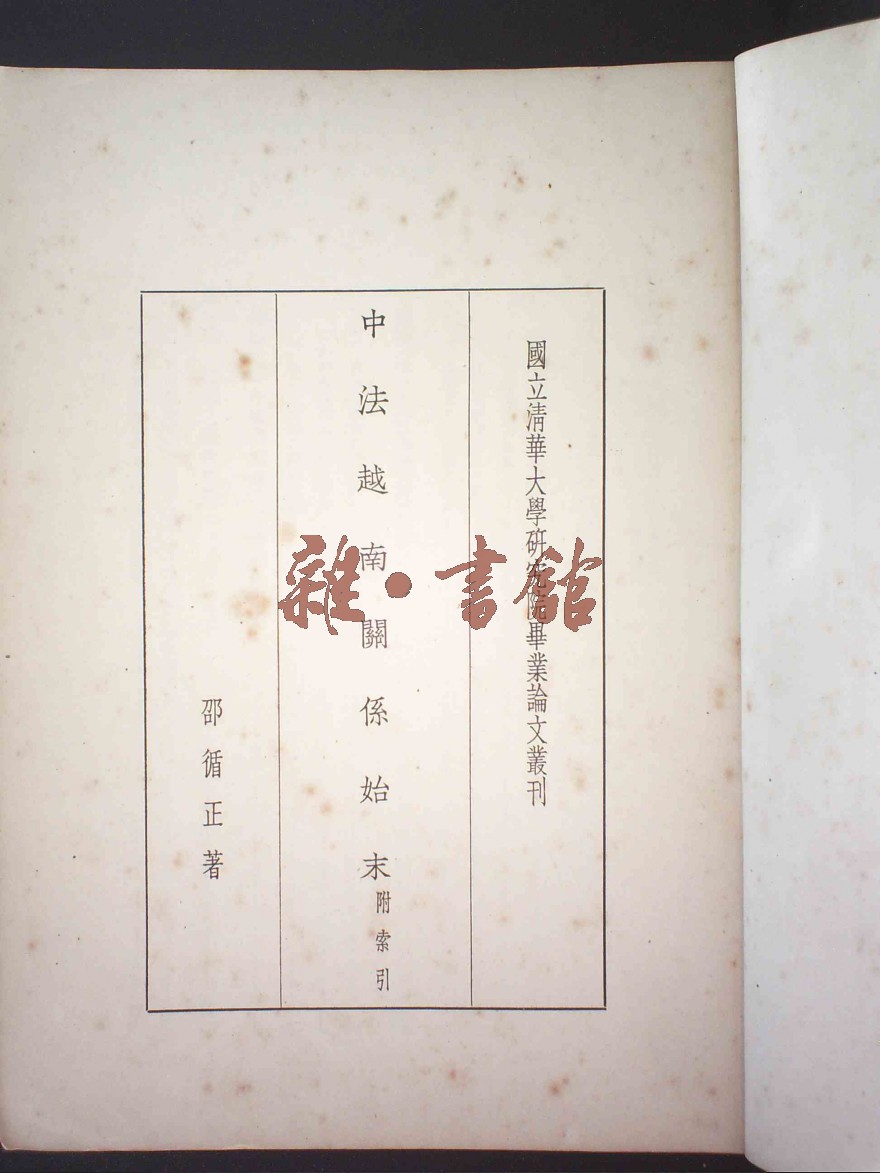 國立清華大學研究院畢業論文叢刊
中法越南關係始末
附索引
邵循正著
雜·書館